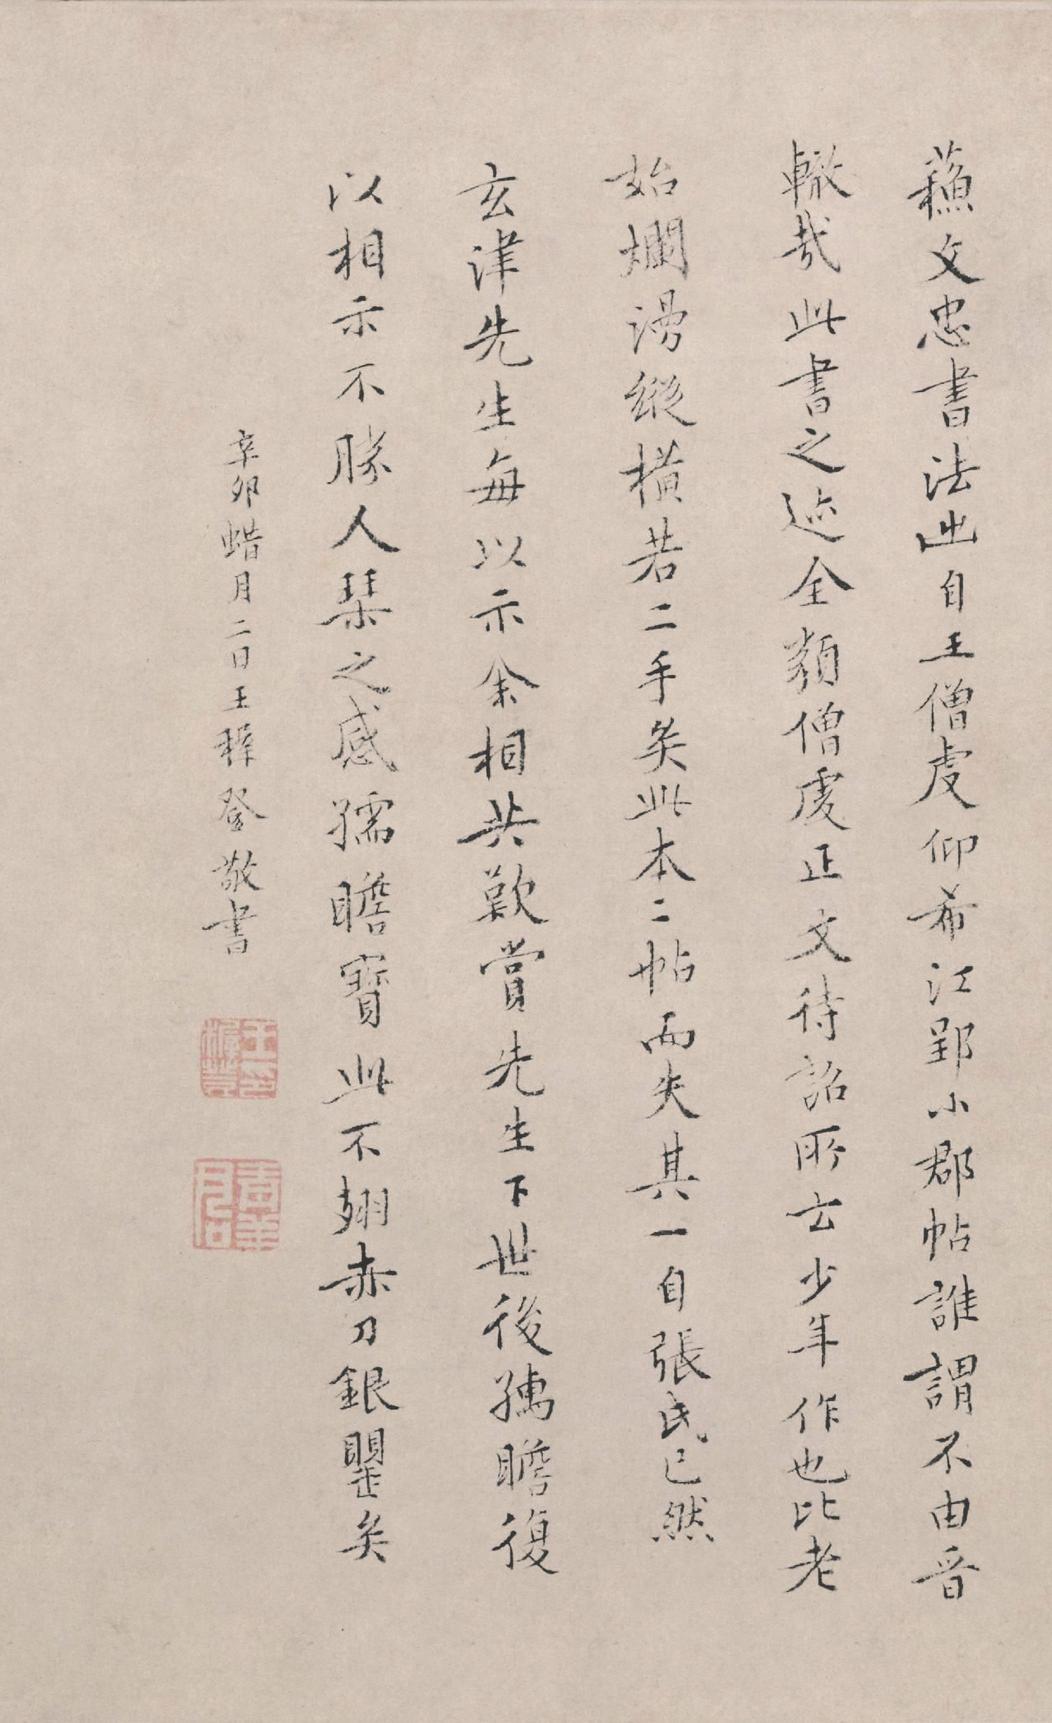 蘓文忠書法出自王僧虔仰希江郢小郡帖誰謂不由晋
轍哉此書之迹全類僧虔正文待詔所云少年作也比老
始爛漫縱橫若二手矣此本二帖而失其一自張氏已然
玄津先生每以示余相共歎賞先生下世後孺瞻復
以相示不勝人琹之感孺瞻寳此不翅赤刀銀瞿矣
辛卯蜡月二日王穉登敬書
王穉登印
青羊君